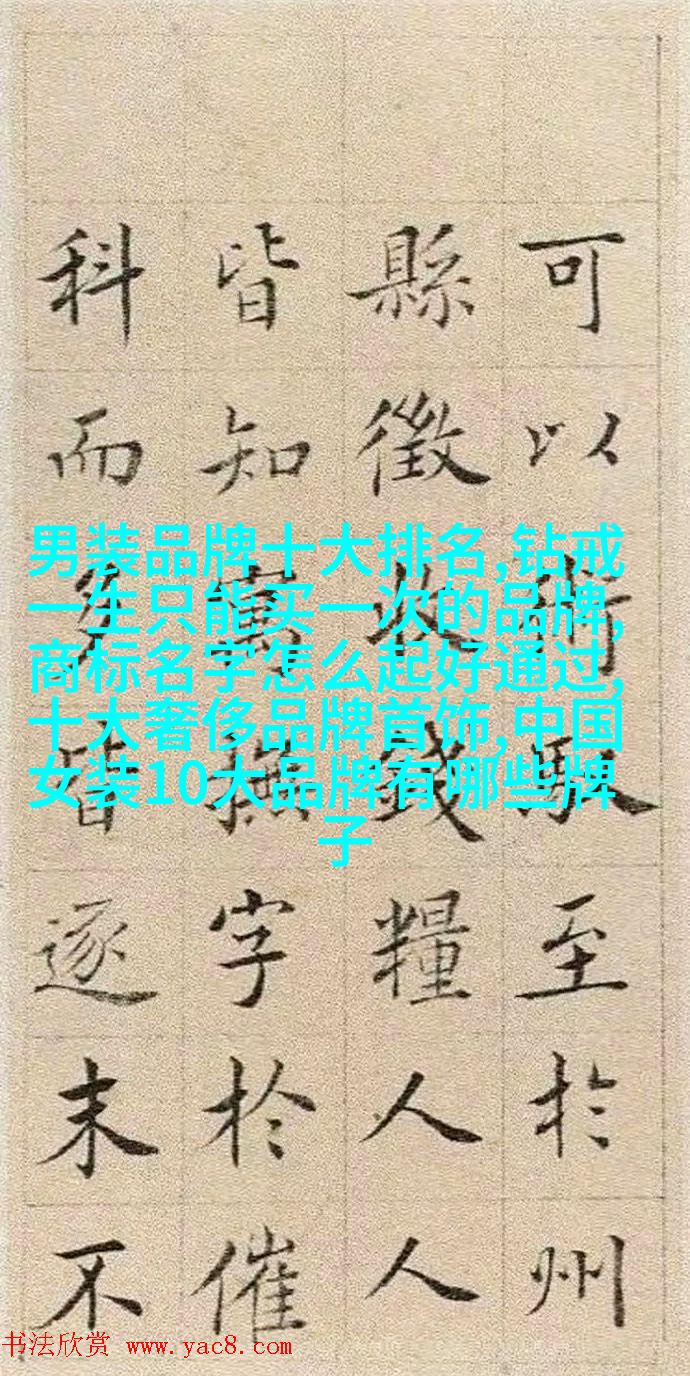 可以術至於州
縣徵收錢糧人人
皆知寓撫字於催
科而皆逐末不
男装品牌十大排名,钻戒
一生只能买一次的品牌,
商标名字怎么起好通过,
十大奢侈品牌首饰,中国
女装10大品牌有哪些牌
子
书法欣赏 www.yac8.com